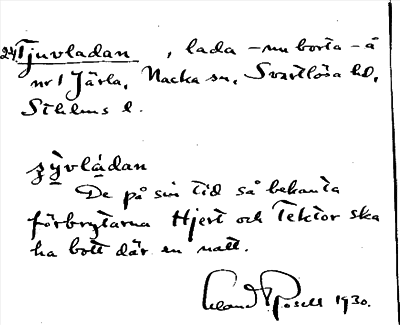 24 Tjuvladan, lada – nu borta – å
nr 1 Järla, Nacka sn, Svartlösa hd,
Sthlms l.
De på sin tid så bekanta
förbrytarna Hjert och Tektor ska
ha bott där en natt.
1930.